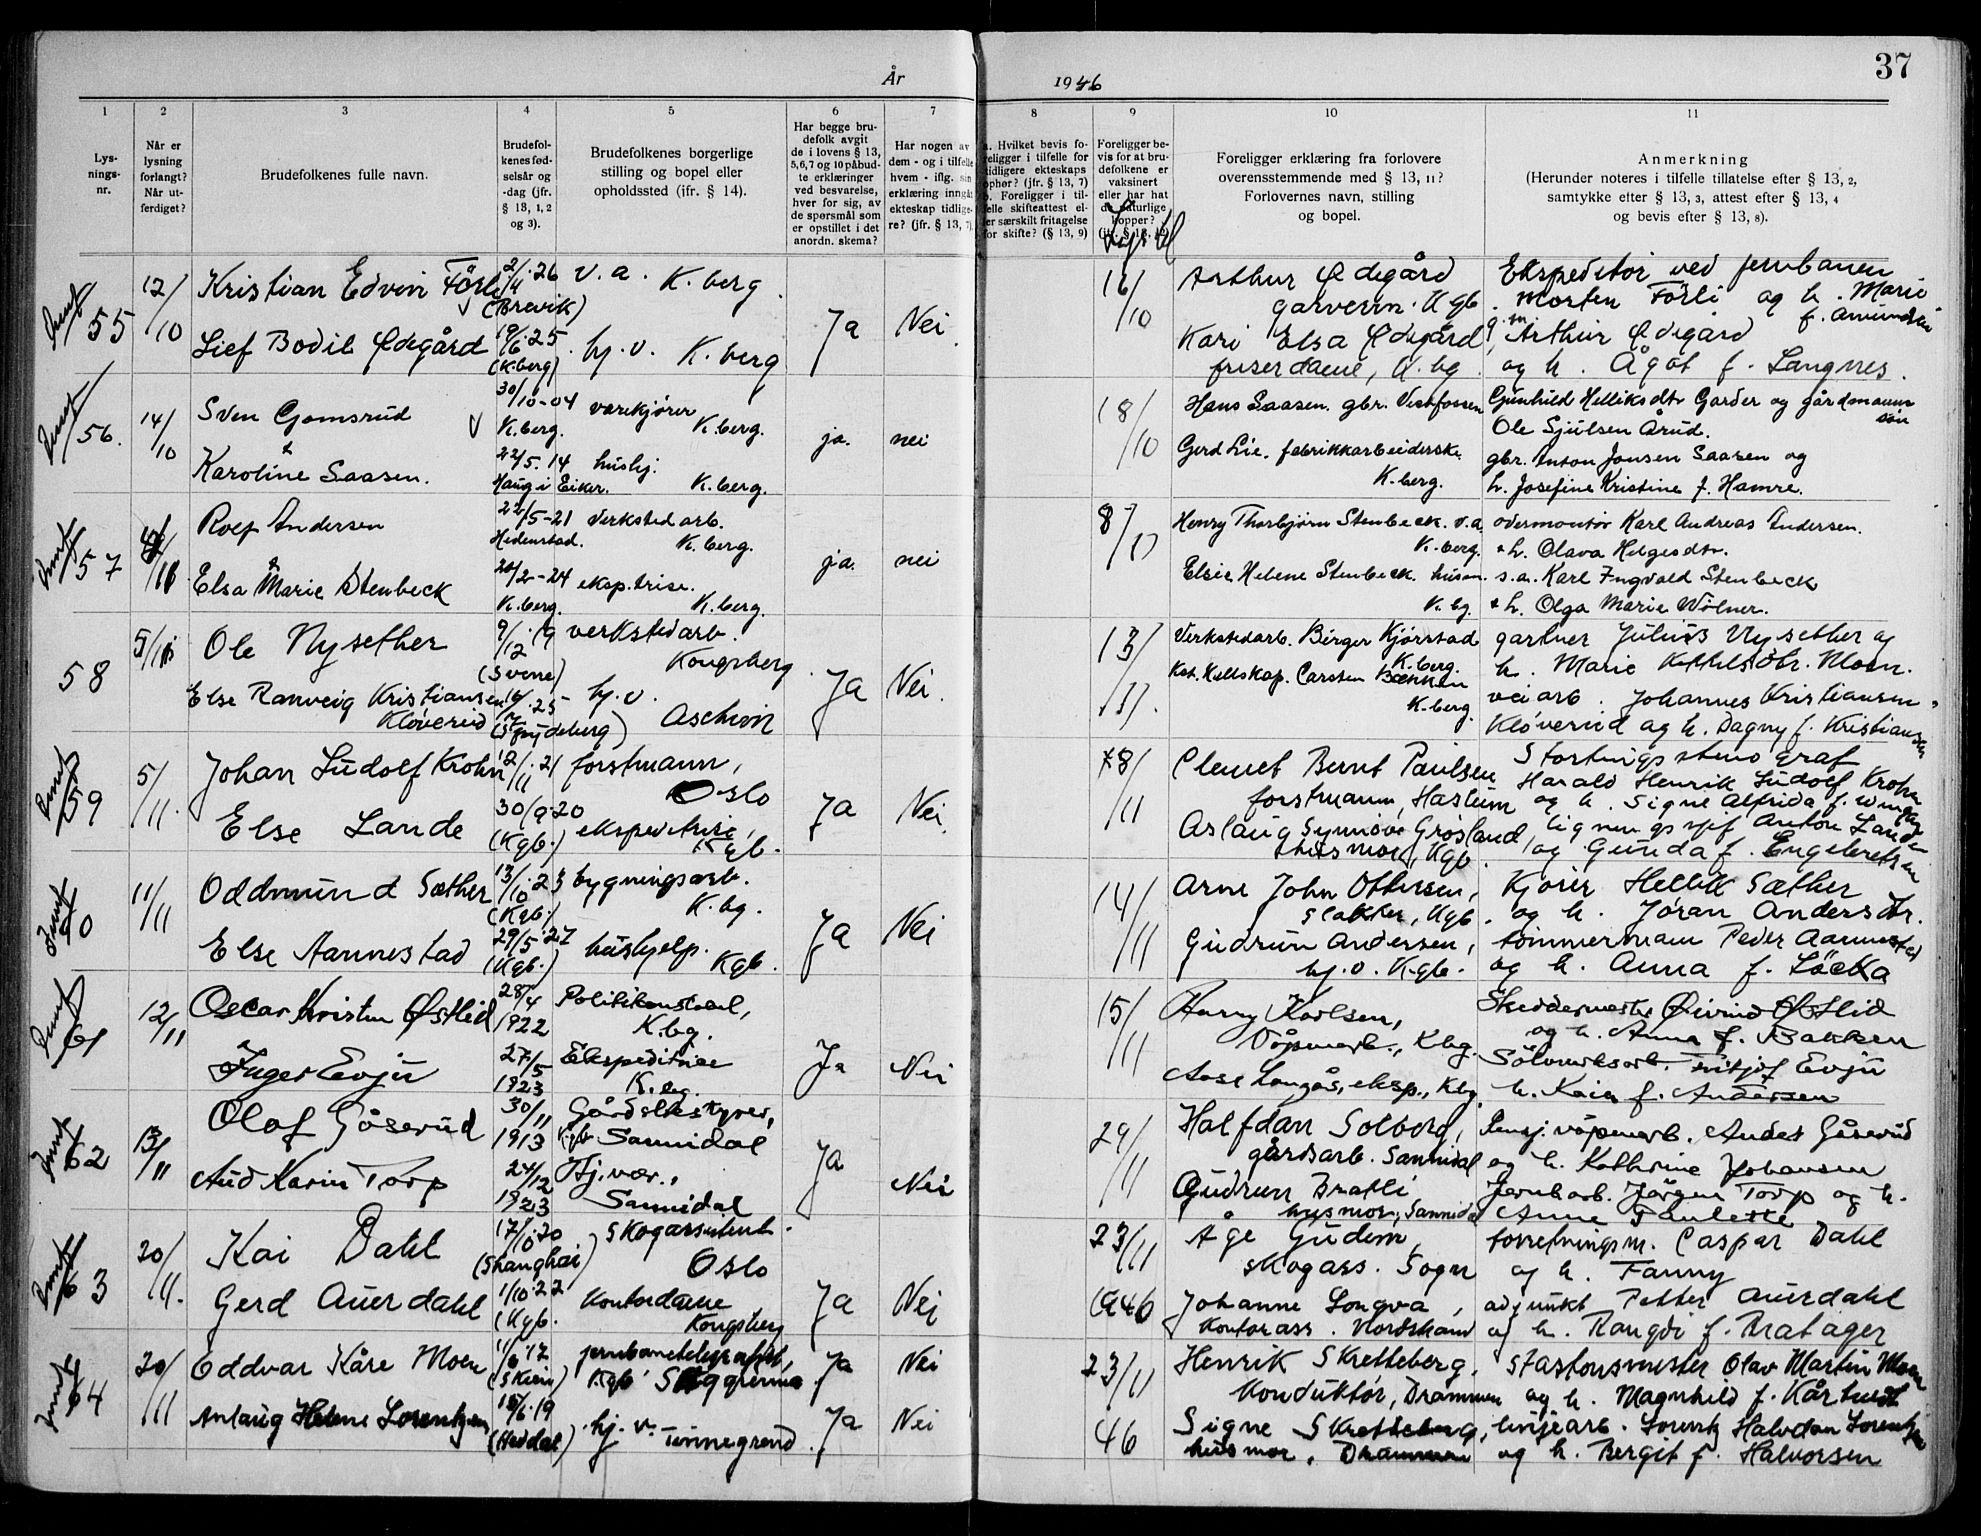 År
1946
37
1
2
3
4
5
6
7
8
9
10
11
Lys-
nings-
nr.
Når er
lysning
forlangt?
Når ut-
ferdiget?
Brudefolkenes fulle navn.
Brudefol-
kenes fød-
selsår og
-dag (jfr.
§ 13, 1, 2
og 3).
Brudefolkenes borgerlige
stilling og bopel eller
opholdssted (ifr. § 14).
Har begge bru-
defolk avgit
de i lovens § 13,
5,6,7 og 10 påbud-
te erklæringer
ved besvarelse,
hver for sig, av
de spørsmål som
er opstillet i det
anordn. skema?
Har nogen av
dem - og i tilfelle
hvem - iflg. sin
erklæring inngått
ekteskap tidlige-
re? (jfr. § 13, 7)
a. Hvilket bevis fo-
religger i tilfelle for
tidligere ekteskaps
ophør? (jfr. § 13, 7)
b. Foreligger i til-
felle skifteattest el-
ler særskilt fritagelse
for skifte? (§ 13, 9)
Foreligger be-
vis for at bru-
defolkene er
vaksinert
eller har hat
de naturlige
kopper?
Foreligger erklæring fra forlovere
overensstemmende med § 13, 11?
Forlovernes navn, stilling
og bopel.
Anmerkning
(Herunder noteres i tilfelle tillatelse efter § 13, 2,
samtykke efter § 13, 3, attest efter § 13, 4
og bevis efter § 13, 8).
55
12/10
Kristian Edvin Förli
2/4.26
(Brevik)
v.a. K.berg
Lief Bodil Ødegård
19/6.25
(K.berg)
hj.v. K.berg
Ja
Nei
16/10
Arthur Ødegård
garverm. Kgb.
Kari Elsa Ødegård
friserdame, K.bg.
Ekspeditør ved jernbanen
Morten Förli og h. Marie
f. Amundsen
Arthur Ødegård
og h. Ågot f. Langnes.
56.
14/10
Sven Gomsrud
Karoline Saasen.
30/10-04
K.berg.
22/5.14
Haug i Eiker.
varekjører
K.berg.
hushj.
K.berg.
ja.
nei
18/10
Hans Saasen. gbr. Vestfossen
Gerd Lie. fabrikkarbeiderske.
K.berg.
Gunhild Helliksdtr Garder og gårdmann
Ole Sjulsen Årud.
gbr. Anton Jonsen Saasen og
h. Josefine Kristine f. Hamre.
57
Rolf Andersen
Elsa Marie Stenbeck
22/5-21
Hedenstad.
20/2-24
K.berg.
Verksted arb.
K.berg.
eksp.trise.
K.berg.
ja.
nei
8/11
Henry Thorbjørn Stenbeck. v.a.
K.berg.
Elsie Helene Stenbeck. husm.
K.bg.
overmontør Karl Andreas Andersen.
+ h. Olava Helgesdtr.
s.a. Karl Ingvald Stenbeck
+ h. Olga Marie Wölner.
58
5/11
Ole Nysether
Else Ranveig Kristiansen
Kløverud
9/12.19
(Svene)
16/12.25
(Spydeberg)
verkstedarb.
Kongsberg
hj.v.
Aschim
Ja
Nei.
13/11.
Verkstedarb. Birger Kjørstad
K.berg.
Carsten Bakken
K.berg.
gartner Julius Nysether og
h. Marie Kettilsdtr. Moen.
veiarb. Johannes Kristiansen
Kløverud og h. Dagny f. Kristiansen
59
5/11.
Johan Ludolf Krohn
Else Lande
12/11.21
30/9.20
(Kgb.)
forstmann,
Oslo
ekspeditrise,
Kgb.
Ja
Nei.
8/11
Clemet Bernt Paulsen
forstmann, Haslum
Aslaug Synnöve Grösland
husmor, Kgb.
Stortingsstenograf
Harald Henrik Ludolf Krohn
og h. Signe Alfrida f.
ligningssjef Anton Lande
og Gunda f. Engebretsen
60
11/11
Oddmund Sæther
Else Aannestad
13/10.23
(Kgb.)
29/5.27
(Kgb.)
bygningsarb.
K.bg.
hushjelp.
Kgb.
Ja
Nei
14/11
Arne John Ottersen,
slakter, Kgb.
Gudrun Andersen,
hj.v. Kgb.
Kjörer Hellik Sæther
og h. Jøran Andersdtr.
tömmermann Peder Aannestad
og h. Anna f. Löcka
61
12/11
Oscar Kristen Østlid
Inger Evju
28/4
1922
27/5
1923
Politikonstabel,
K.bg.
Ekspeditrise
K.bg.
Ja
Nei
15/11
Harry Karlsen,
Våpenarb., Kbg.
Aase Langås, eksp., Kbg.
Skreddermester Øivind Østlid
og h. Anna f. Bakken
Sölvverksarb. Fritjof Evju
h. Kaia f. Andersen
62
13/11
Olaf Gåserud
Aud Karin Torp
30/11
1913 Kgb
24/12
1923
Gårdsbestyrer,
Sannidal
Hj.vær.,
Sannidal
Ja
Nei
29/11
Halfdan Solberg,
gårdsarb. Sannidal
Gudrun Bratli
husmor, Sannidal
Pensj. våpenarb. Anders Gåserud
og h. Kathrine Johansen
Jernb.arb. Jörgen Torp og h.
Anne Paulette
63
20/11.
Kai Dahl
Gerd Auerdahl
17/10.20
(Shanghai)
1/10.22
(Kgb.
skogassistent.
Oslo
Kontordame
Kongsberg
Ja
Nei
23/11
1946
Åge Gudem,
skogass. Sogn
Johanne Longva,
Kontorass. Nordstrand
forretningsm. Caspar Dahl
og h. Fanny
adjunkt Petter Auerdahl
og h. Rangdi f. Bratager
64
20/11
Eddvar Kåre Moen
Anlaug Helene Lorentzen
11/6.17
(Skien)
18/6.19
(Heddal)
jernbanetelegrafist,
Kgb
hj.v. Tinnegrend.
Ja
Ja
Nei
Nei
23/11
46
Henrik Skretteberg,
Konduktør, Drammen
Signe Skretteberg,
husmor, Drammen
Stasjonsmester Olav Martin Moen
og h. Magnhild f. Kårhudt
linjearb. Lorentz Halvdan Lorentzen
og h. Bergit f. Halvorsen